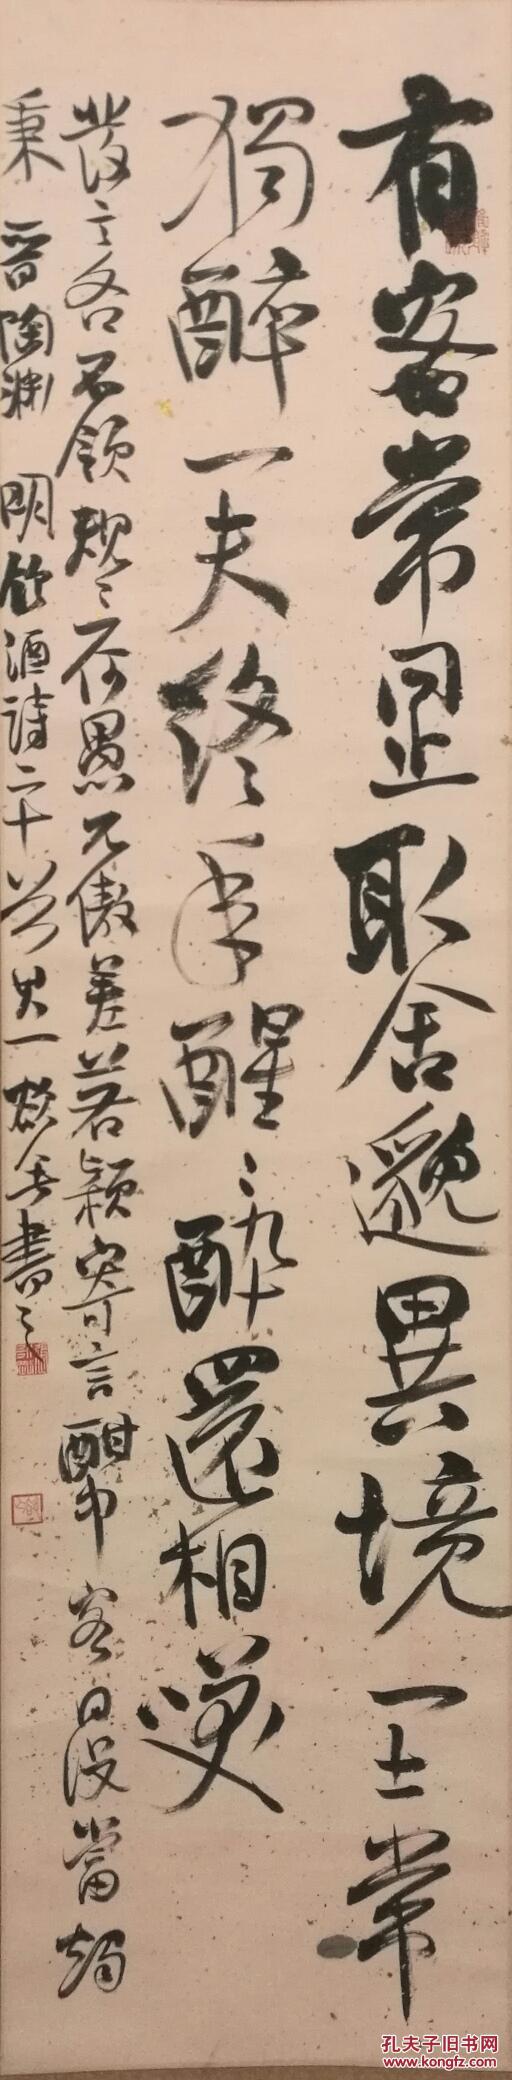 有客常同止取舍邈異境一士常
獨醉一夫終年醒〻醉還相咲
發言各不領規〻一何愚兀傲差若穎寄言酣中客日沒當燭
秉 晉陶淵明飲酒詩二十首其一 書之
孔夫子旧书网
www.kongfz.com